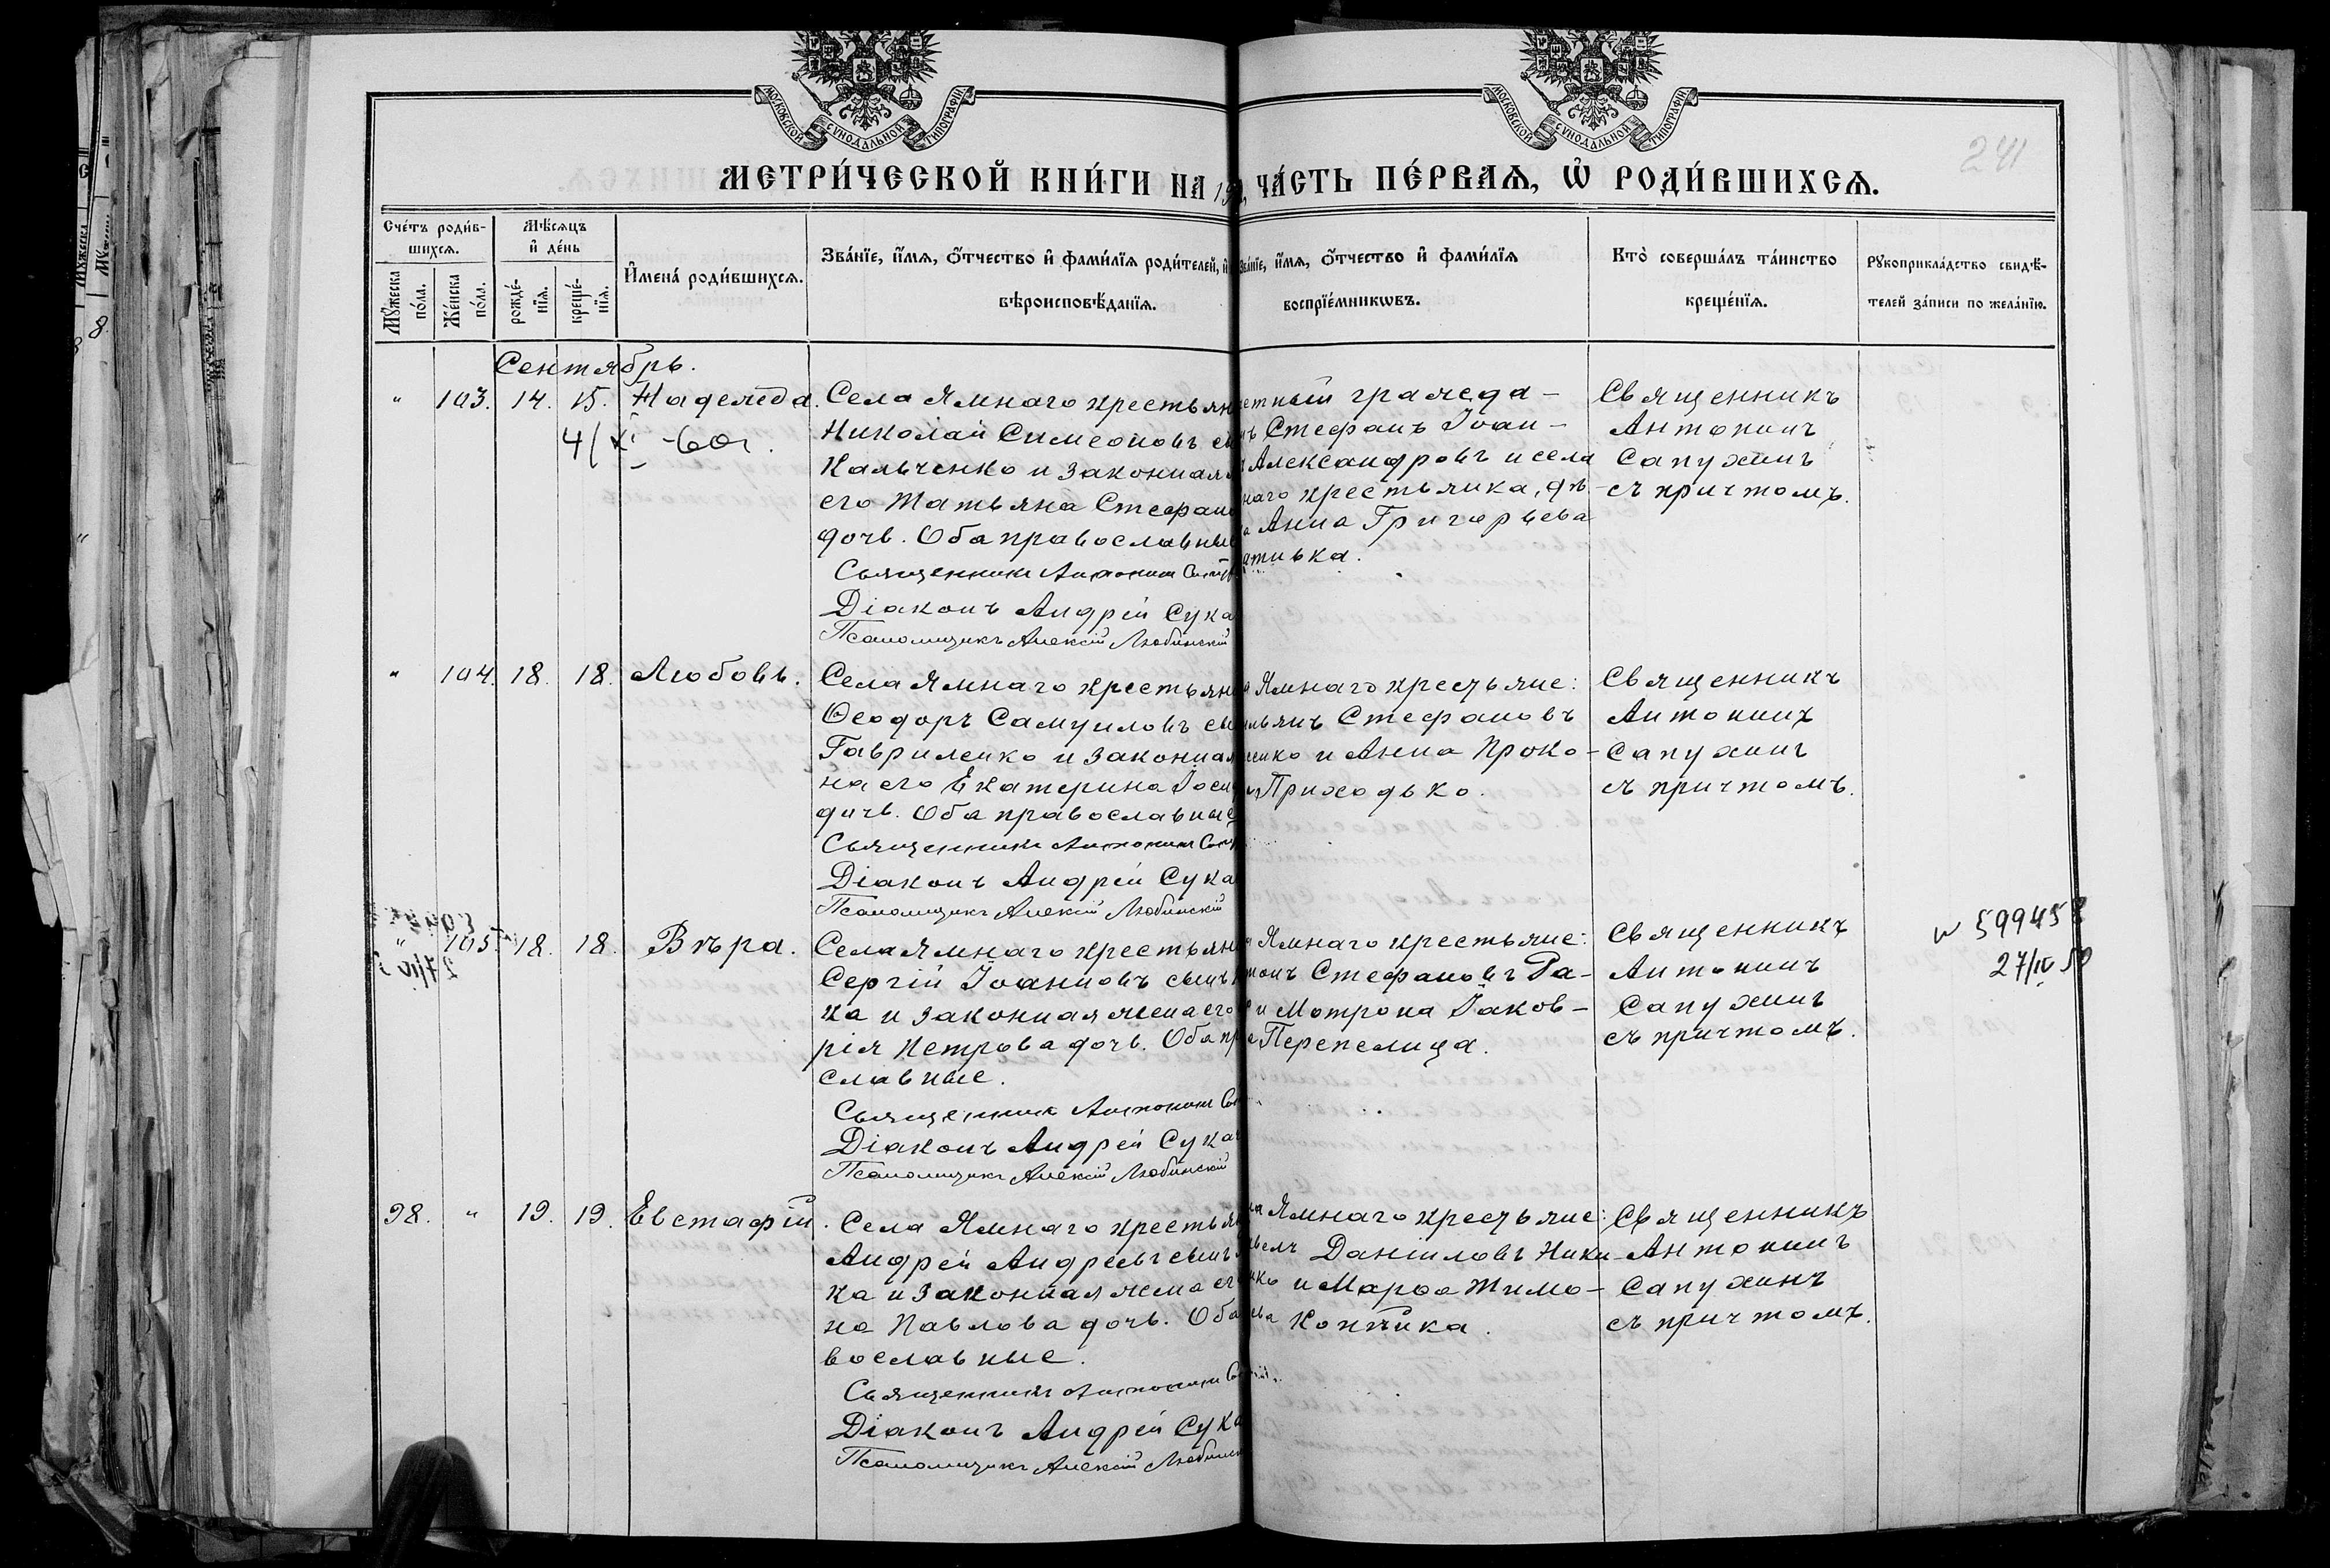 МОСКОВСКОЙ СУНОДАЛЬНОЙ ТИПОГРАФІИ
МОСКОВСКОЙ СУНОДАЛЬНОЙ ТИПОГРАФІИ
241
МЕТРИ́ЧЕСКОЙ КНИ́ГИ НА
ЧА́СТЬ ПЕ́РВАѦ, Ѡ҆ РОДИ́ВШИХСѦ.
Сче́тъ роди́в-
шихсѧ.
Мѣ́сѧцъ
и҆ де́нь
Мꙋ́жеска по́ла.
Же́нска по́ла.
рожде́-
нїѧ.
креще́-
нїѧ.
И҆мена̀ роди́вшихсѧ.
Зва́нїе, и҆́мѧ, ѻ҆́тчество и҆ фами́лїѧ роди́телей, и҆
вѣроисповѣ́данїѧ.
Зва́нїе, и҆́мѧ, ѻ҆́тчество и҆ фами́лїѧ
воспрїе́мникѡвъ.
Кто̀ соверша́лъ та́инство
креще́нїѧ.
Рꙋкоприкла́дство свидѣ́-
телей за́писи по жела́нїю.
Сентябрь.
" 103. 14. 15. Надежда.
4/XI -60г.
Села Ямнаго крестьян
Николай Симеоновъ сы
Кальченко и законная
его Татьяна Стефан
дочь. Оба православные
Священникъ Антонинъ Сапух
Діаконъ Андрей Сука
Псаломщикъ Алексій Любинскій
етный гражда-
нъ Стефанъ Іоан-
Александровъ и села
наго крестьянка, дѣ-
а Анна Григорьева
ативка.
Священникъ
Антонинъ
Сапухинъ
съ причтомъ.
" 104. 18. 18. Любовь.
Села Ямнаго крестьян
Ѳеодоръ Самуиловъ сы
Гавриленко и законная
на его Екатерина Іоси
дочь. Оба православные
Священникъ Антонинъ Сапу
Діаконъ Андрей Сука
Псаломщикъ Алексій Любинскій
а Ямнаго крестьяне:
ильянъ Стефановъ
енко и Анна Проко-
Приходько.
Священникъ
Антонинъ
Сапухинъ
съ причтомъ.
" 105. 18. 18. Вѣра.
Села Ямнаго крестьян
Сергій Іоанновъ сынъ
ка и законная жена его
рія Петрова дочь. Оба пр
славные.
Священникъ Антонинъ Сап
Діаконъ Андрей Сука
Псаломщикъ Алексій Любинскій
а Ямнаго крестьяне:
монъ Стефановъ Га-
и Мотрона Іаков-
а Перепелица.
Священникъ
Антонинъ
Сапухинъ
съ причтомъ.
599458
27/IV 59
98. " 19. 19. Евстафій.
Села Ямнаго крестьян
Андрей Андреевъ сынъ
ка и законная жена его
на Павлова дочь. Оба
вославные.
Священникъ Антонинъ Сап
Діаконъ Андрей Сука
Псаломщикъ Алексій Любинск
ла Ямнаго крестьяне:
авелъ Даніиловъ Ники-
нко и Марѳа Тимо-
ева Копійка.
Священникъ
Антонинъ
Сапухинъ
съ причтомъ.